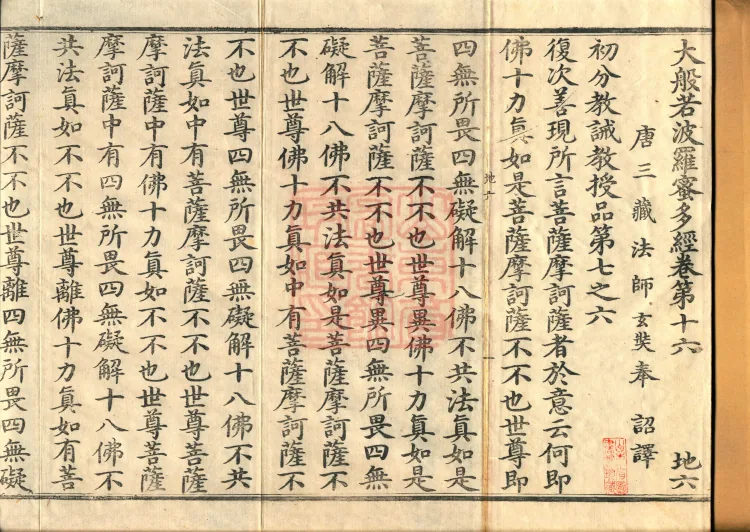 大般若波羅蜜多經卷第十六 地六
唐三藏法師玄奘奉 詔譯
初分教誡教授品第七之六
復次善現所言菩薩摩訶薩者於意云何即
佛十力真如是菩薩摩訶薩不不也世尊即
地六
四無所畏四無礙解十八佛不共法真如是
菩薩摩訶薩不不也世尊異佛十力真如是
菩薩摩訶薩不不也世尊異四無所畏四無
礙解十八佛不共法真如是菩薩摩訶薩不
不也世尊佛十力真如中有菩薩摩訶薩不
不也世尊四無所畏四無礙解十八佛不共
法真如中有菩薩摩訶薩不不也世尊菩薩
摩訶薩中有佛十力真如不不也世尊菩薩
摩訶薩中有四無所畏四無礙解十八佛不
共法真如不不也世尊離佛十力真如有菩
薩摩訶薩不不也世尊離四無所畏四無礙